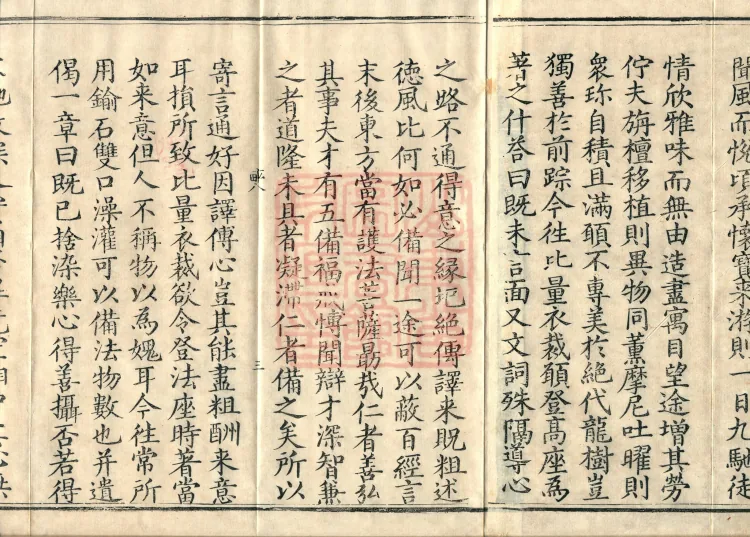 聞風而恱頃承懷寶来游則一日九馳徒
情欣雅味而無由造盡寓目望途增其勞
佇夫旃檀移植則異物同薰摩尼吐曜則
衆珎自積且滿願不專美於絶代龍樹豈
獨善於前踪今往比量衣裁願登髙座為
著之什荅曰既未言面又文詞殊隔導心
之路不通得意之縁圯絶傳譯来貺粗述
徳風比何如必備聞一途可以蔽百經言
末後東方當有護法菩薩勗㦲仁者善弘
其事夫才有五備福戒慱聞辯才深智兼
之者道隆未具者凝滯仁者備之矣所以
八
三
寄言通好因譯傳心豈其能盡粗酬来意
耳損所致比量衣裁欲令登法座時著當
如来意但人不稱物以為媿耳今往常所
用鍮石雙口澡灌可以備法物數也并遺
偈一章曰既已捨染樂心得善攝否若得